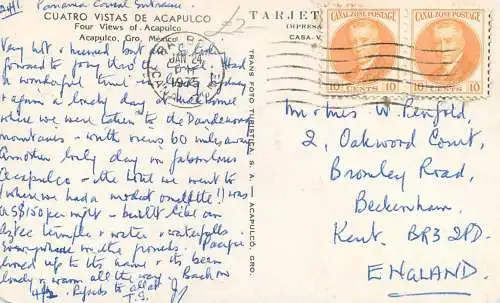 24/1. Panama Canal Entrance
CUATRO VISTAS DE ACAPULCO
Four Views of Acapulco
Acapulco, Gro. México
Very hot & humid but
forward to
a wonderful time in
& again a lovely day at Melbourne
where we were taken to the Dandenong
mountains - with views 60 miles away.
Another lovely day in fabulous
Acapulco - the hotel we went to
(where we had a modest one!) was
US$150 per night - built like an
Aztec temple & water & waterfalls
everywhere in the grounds. Pacific
lived up to its name & its been
lovely & warm all the way. Back on
4/2. Regards to all at
T.S.
TRANS FOTO TURISTICA, S. A. ACAPULCO, GRO.
TARJETA
JAN 24
1975
CANAL ZONE POSTAGE
10 CENTS 10
CANAL ZONE POSTAGE
10 CENTS 10
Mr & Mrs W. Penfold,
2, Oakwood Court,
Bromley Road,
Beckenham.
Kent. BR3 2PD.
ENGLAND.